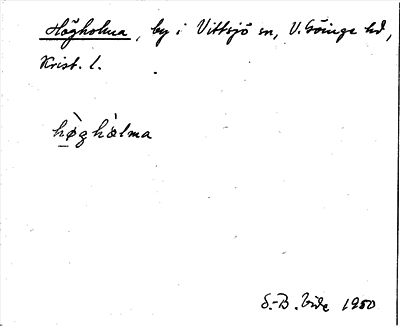 Högholma, by i Vittsjö sn, V. Göinge hd,
Krist. l.
hø̀ghàlma
S.-B. Vide 1950